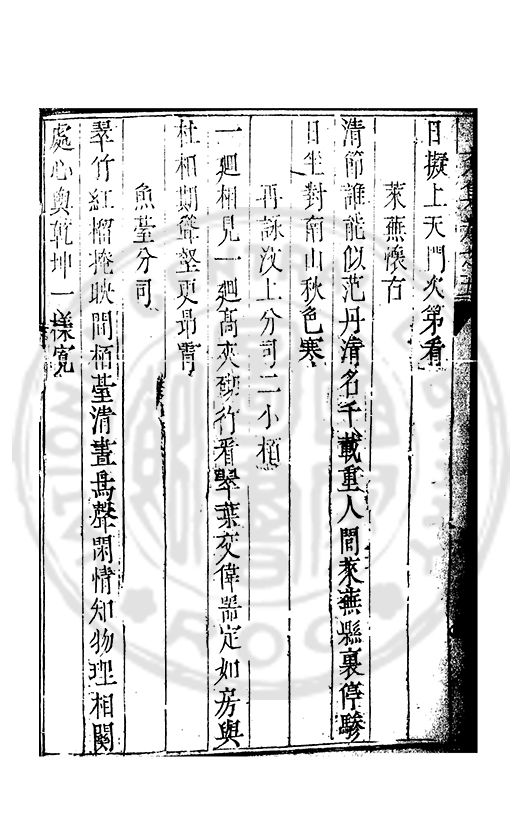 日擬上天門次第看
萊蕪懷古
清節誰能似范丹清名千載重人間萊蕪縣裏停驂
日坐對南山秋色寒
再詠汶上分司二小栢
一迴相見一迴高夾砌行看翠葉交偉器定如房與
杜相期聳壑更昻霄
魚臺分司
翠竹紅榴掩映間栢臺清晝鳥聲閑情知物理相關
處心與乾坤一樣寬